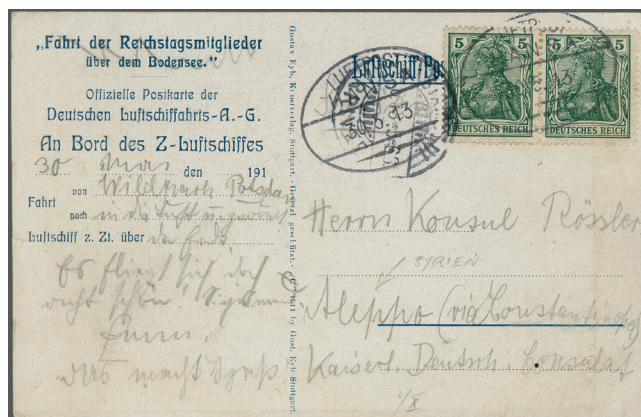 „Fahrt der Reichstagsmitglieder
über dem Bodensee."
Offizielle Postkarte der
Deutschen Luftschiffahrts-A.-G.
An Bord des Z-Luftschiffes
30 Mai den 191
Fahrt von Wildpark Potsdam
nach in die Luft
Luftschiff z. Zt. über der Erde
Es fliegt sich doch
recht schön!
Das macht Spaß
Gustav Eyb, Kunstverlag, Stuttgart.
Luftschiff-Pos
30 5 13
5 5
DEUTSCHES REICH
5 5
DEUTSCHES REICH
Herrn Konsul Rössler
SYRIEN
Aleppo (via Constantinopel)
Kaiserl. Deutsch. Consulat